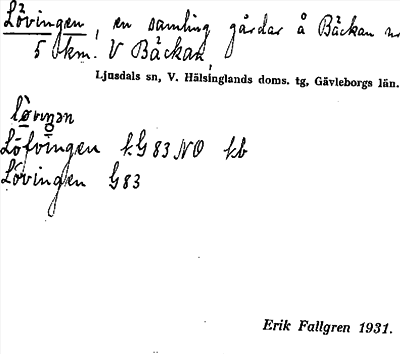 Lövingen, en samling gårdar å Bäckan nr
5 km. V Bäckan,
Ljusdals sn, V. Hälsinglands doms. tg, Gävleborgs län.
Löfvingen kG 83 NO kb
Lövingen G83
Erik Fallgren 1931.